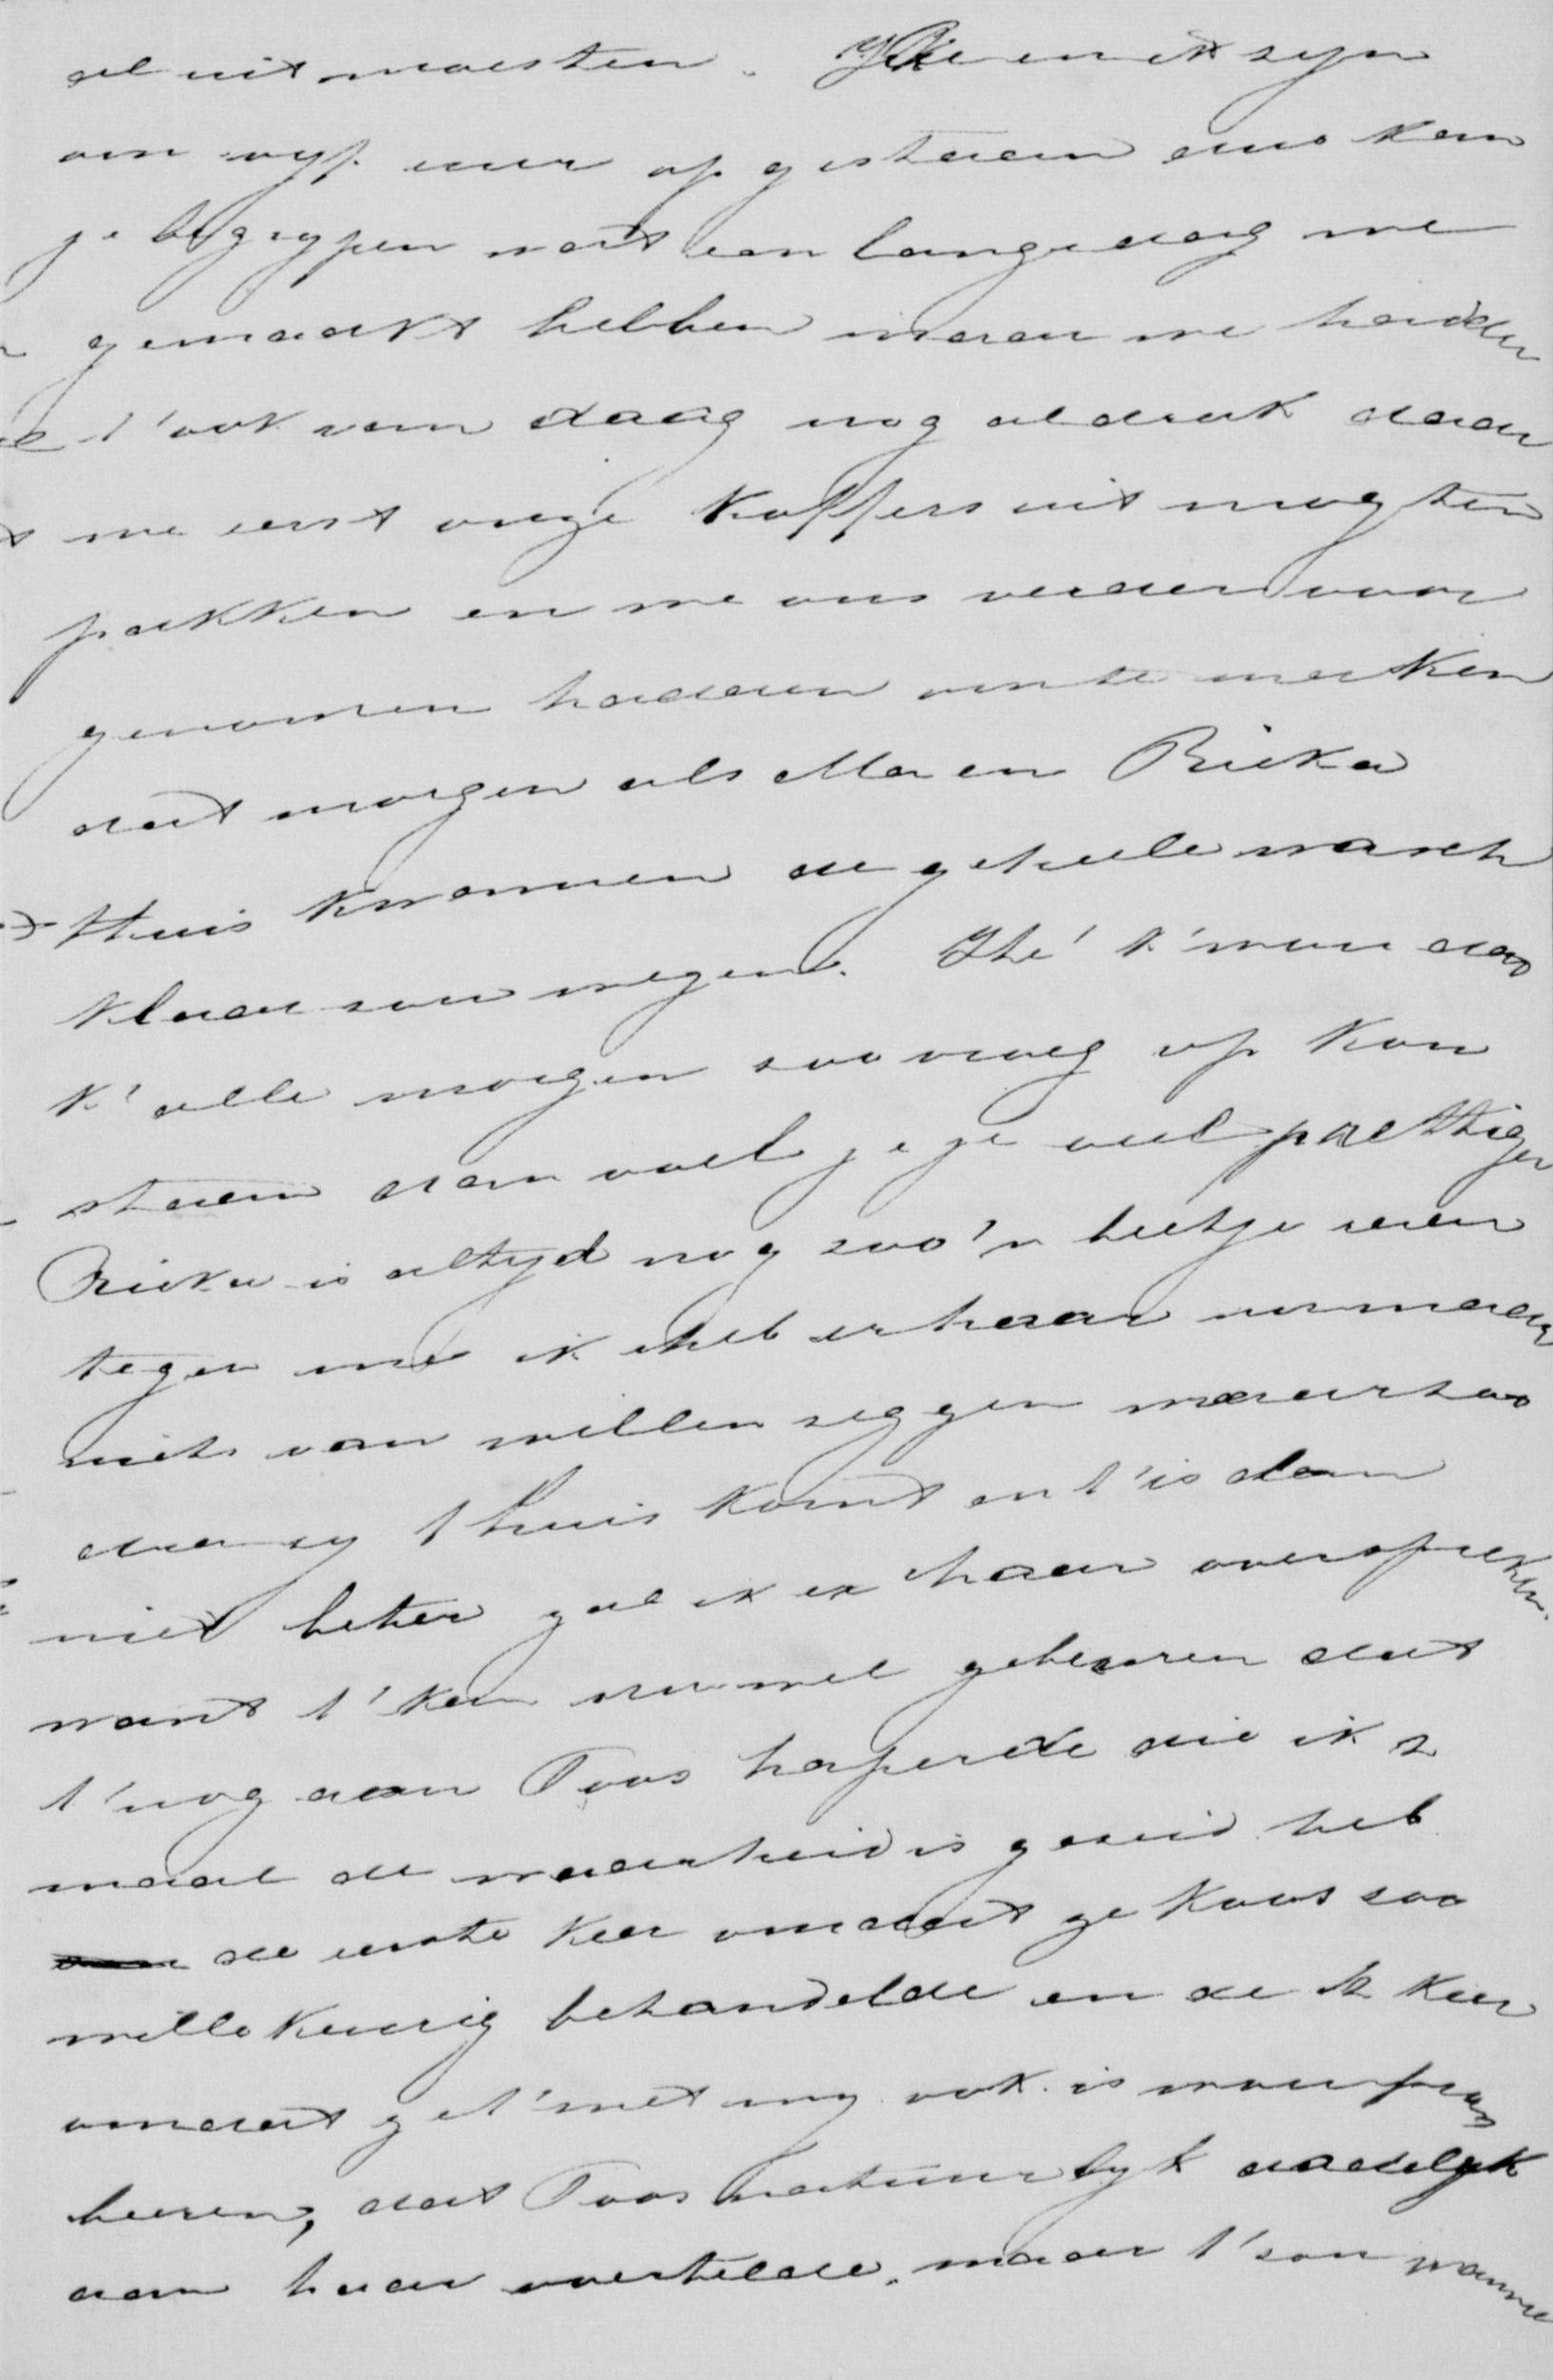 al uit moesten. en ik zyn
om vyf uur op gestaan dus kan
je begrypen wat een lange dag we
gemaakt hebben maar we hadden
t'ook van daag nog al druk daar
we eerst onze koffers uit mogten
pakken en we ons verder voor
genomen hadden om te maken
dat morgen als Ma en Rieka
thuis kwamen de geheele wasch
klaar sou wegen. Hé k'wou dat
k' alle morgen soo vroeg op kon
staan dan voel je je veel prettiger
Rieka is altyd nog soo'n beetje raar
tegen me ik heb er haar nu maar
niets van willen seggen maar soo
dra sy thuis komt en t'is dan
niet beter zal ik er haar over spreken.
want t'kan nu wel gebeuren dat
t'nog aan Toos haperde die ik 2
maal de waarheid is gezeid heb
de eerste keer omdat ze Koos soo
willekeurig behandelde en de 2e keer
omdat ze t'met my ook is wou pro
beeren, dat Toos natuurlyk dadelyk
aan haar overtelde. maar t'sou